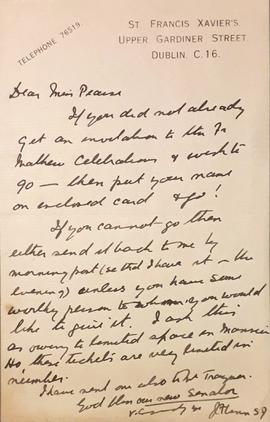 TELEPHONE 76519.
ST. FRANCIS XAVIER'S,
UPPER GARDINER STREET,
DUBLIN, C. 16.
Dear Miss Pearse
If you did not already
get an invitation to the Fr
Mathew Celebrations & wish to
go — then put your name
on enclosed card & go!
If you cannot go then
either send it back to me by
morning post (so that I have it in the
evening) unless you have some
worthy person to whom you would
like to give it. I ask this
as owing to limited space in Mansion
Ho, these tickets are very limited in
number.
I have sent one also to
God bless our new Senator
SJ